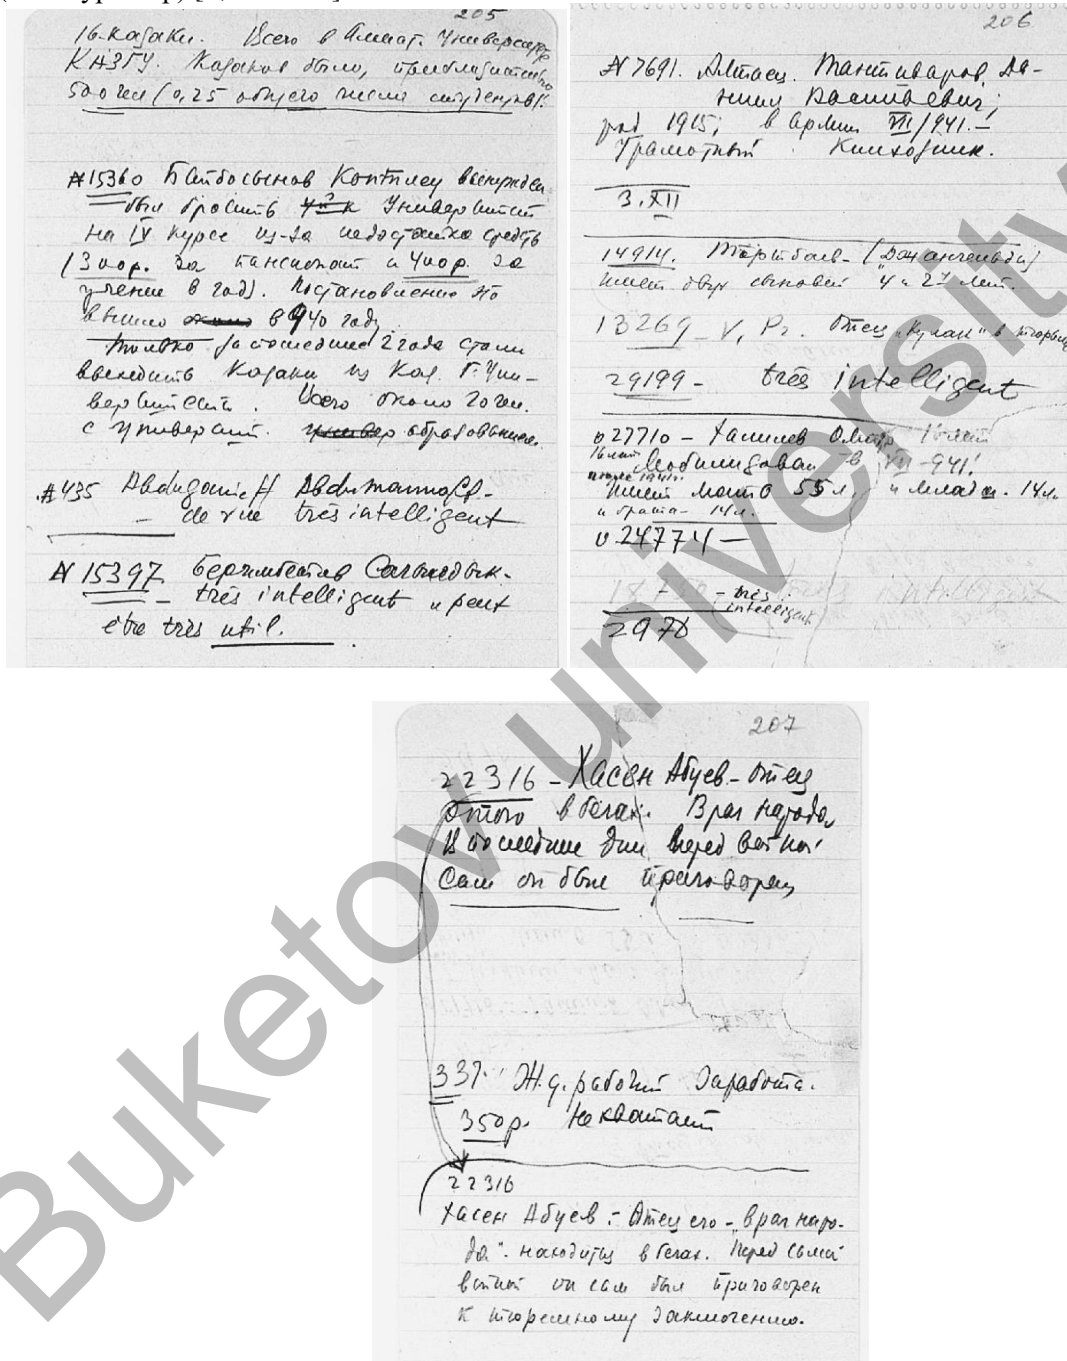 205
16. казаки. Всего в Алмат. Университ
КАЗГУ. Казаков было, приблизительно
500 чел (0,25 общего числа студентов).
№15360 Байбосынов вынужден
был бросить Университет
на IV курсе из-за недостатка средств
(300р. за пансионат и 400р. за
учение в год). Постановление это
вышло в 940 году.
Только за последние 2 года стали
выходить Казаки из Каз. Г. Уни-
верситета. Всего около 20 чел.
с университ. образованием.
№435 Abduganieff
de vue très intelligent
№15397
très intelligent и peut
être très util.
206
№7691. Алтаец. Да-
нил
род 1915; в армии VII/941.–
Грамотный. Колхозник.
3.XII
14914.
имеет двух сыновей 4 и 2х лет.
13269 – V, Pr. Отец „Кулак“ в тюрьме
29199 – très intelligent
о 27710 – Халилев 16 лет
16 лет Мобилизован в VII-941.
имеет мать 55 л. 14 л.
и брата – 14 л.
о 24774 –
très
intelligent
2976
207
22316 – Хасен Абуев – отец
этого в бегах. Враг народа,
В последние дни перед войной
Сам он был приговорен
337. Ж.д. рабочий Заработа.
350р. Не хватает
22316
Хасен Абуев – Отец его – „враг наро-
да“ – находится в бегах. Перед самой
войной он сам был приговорен
к тюремному заключению.
Buketov University